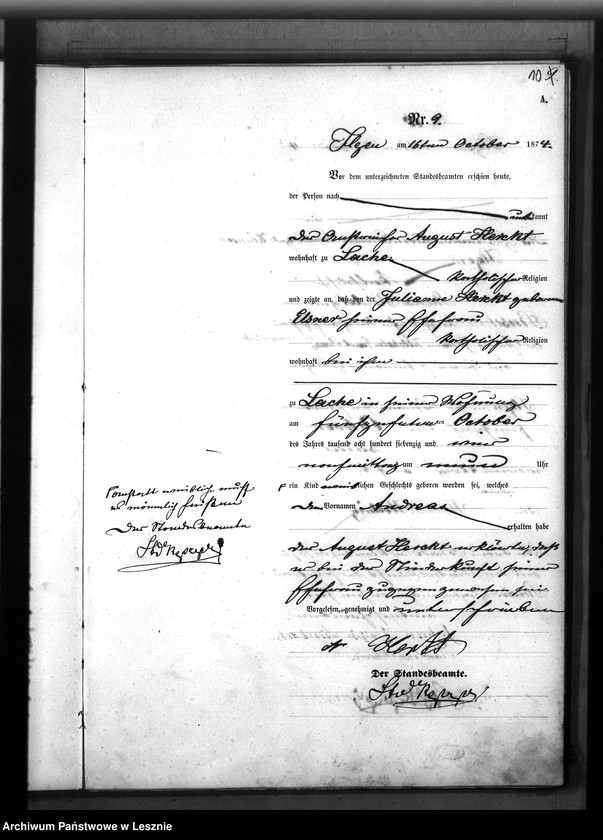 10
A.
Nr. 9.
Ilgen am 16ten October 1874.
Vor dem unterzeichneten Standesbeamten erschien heute,
der Person nach
bekannt
der August Herckt
wohnhaft zu Lache
katholischer Religion
und zeigte an, daß von der Julianne Herckt geborenen
Elsner seiner Ehefrau
katholischer Religion
wohnhaft bei ihm
zu Lache in seiner Wohnung
am fünfzehnten October
des Jahres tausend acht hundert siebenzig und vier
nachmittag um neun Uhr
ein Kind weiblichen Geschlechts geboren worden sei, welches
den Vornamen Andreas
erhalten habe
der August Herckt erklärte, daß
er bei der Niederkunft seiner
Ehefrau zugegen gewesen sei
Vorgelesen, genehmigt und unterschrieben
A Herckt
Der Standesbeamte.
anstatt weiblich muß
es männlich heißen
Der Standesbeamte
Archiwum Państwowe w Lesznie